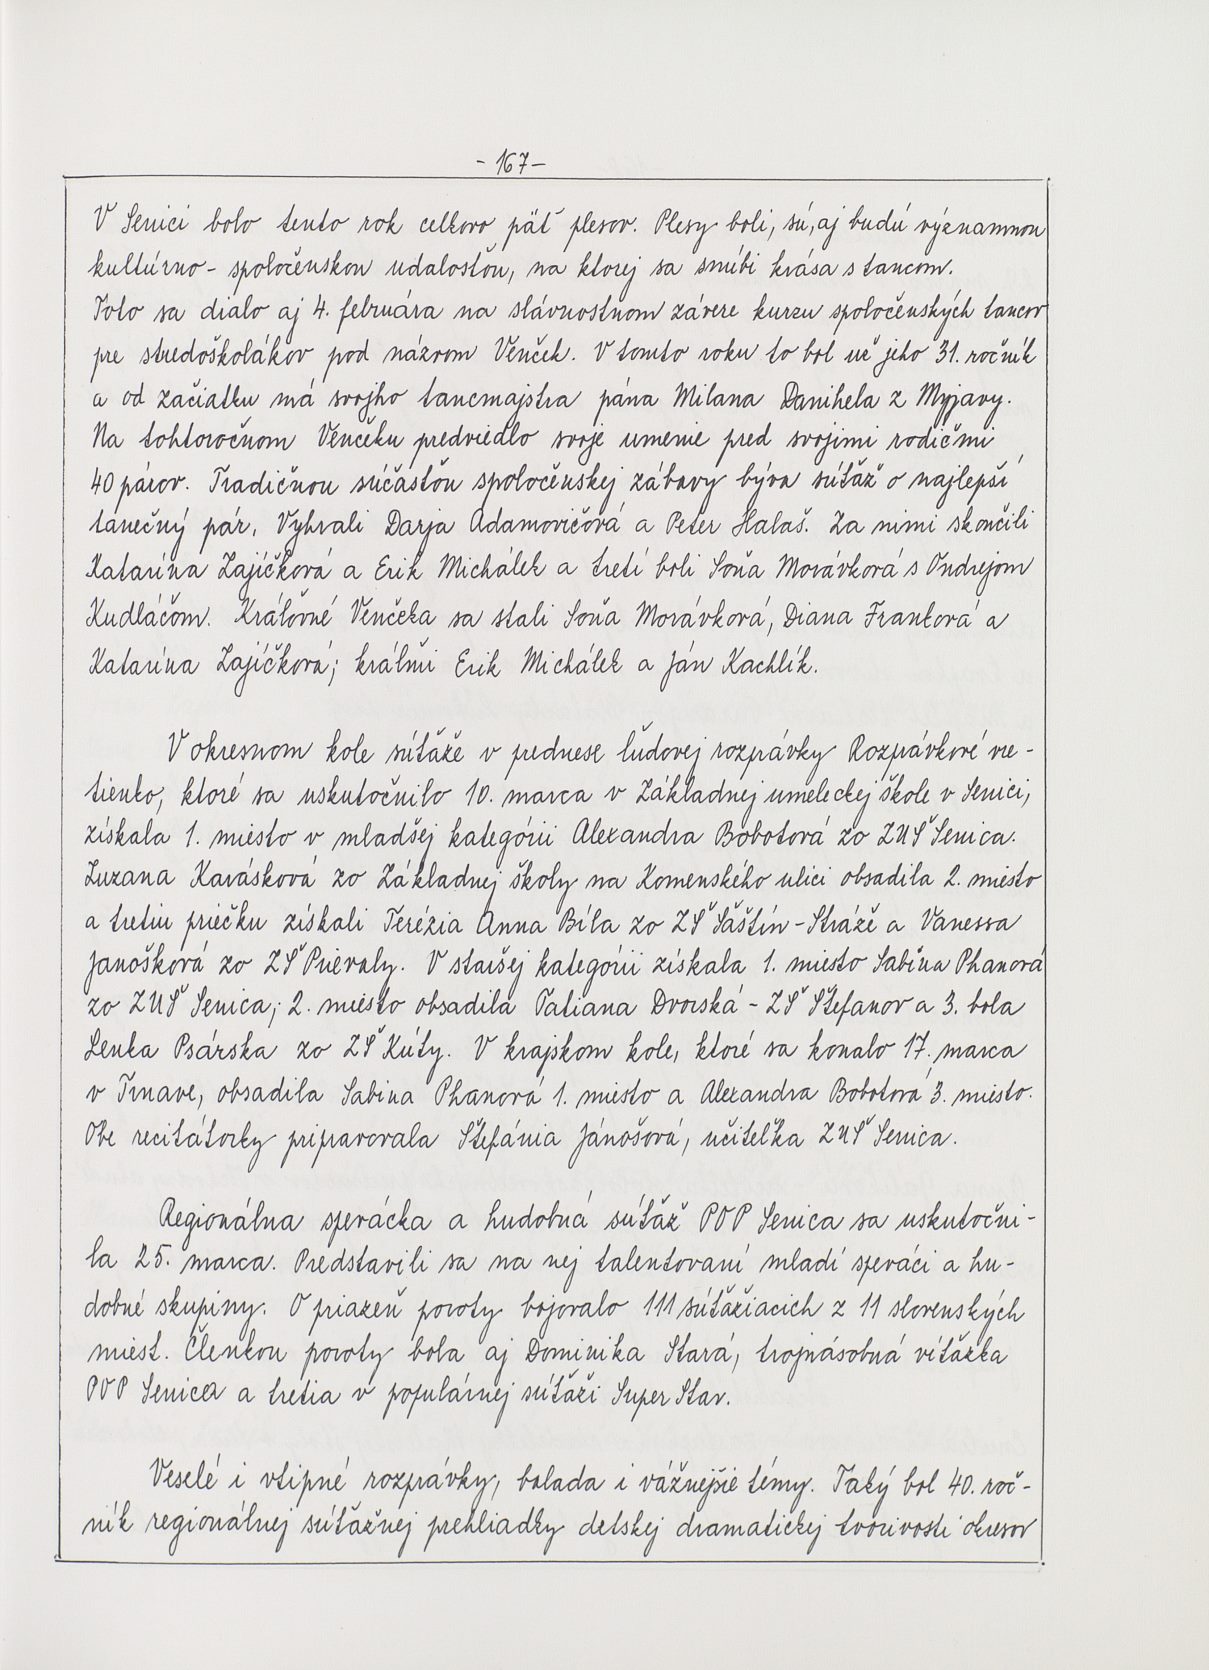 - 167 -
V Senici bolo tento rok celkovo päť plesov. Plesy boli, sú, aj budú významnou
kultúrno - spoločenskou udalosťou, na ktorej sa snúbi krása s tancom.
Toto sa dialo aj 4. februára na slávnostnom závere kurzu spoločenských tancov
pre stredoškolákov pod názvom Venček. V tomto roku to bol už jeho 31. ročník
a od začiatku má svojho tancmajstra pána Milana Danihela z Myjavy.
Na tohtoročnom Venčeku predviedlo svoje umenie pred svojimi rodičmi
40 párov. Tradičnou súčasťou spoločenskej zábavy býva súťaž o najlepší
tanečný pár. Vyhrali Darja Adamovičová a Peter Halaš. Za nimi skončili
Katarína Zajíčková a Erik Michálek a tretí boli Soňa Morávková s Ondrejom
Kudláčom. Kráľovné Venčeka sa stali Soňa Morávková, Diana Franková a
Katarína Zajíčková; kráľmi Erik Michálek a Ján Kachlík.
V okresnom kole súťaže v prednese ľudovej rozprávky Rozprávkové vre -
tienko, ktoré sa uskutočnilo 10. marca v Základnej umeleckej škole v Senici,
získala 1. miesto v mladšej kategórii Alexandra Bobotová zo ZUŠ Senica.
Zuzana Karásková zo Základnej školy na Komenského ulici obsadila 2. miesto
a tretiu priečku získali Terézia Anna Bíla zo ZŠ Šaštín - Stráže a Vanessa
Janošková zo ZŠ Prievaly. V staršej kategórii získala 1. miesto Sabina Phanová
zo ZUŠ Senica; 2. miesto obsadila Tatiana Dvorská - ZŠ Štefanov a 3. bola
Lenka Psárska zo ZŠ Kúty. V krajskom kole, ktoré sa konalo 17. marca
v Trnave, obsadila Sabina Phanová 1. miesto a Alexandra Bobotová 3. miesto.
Obe recitátorky pripravovala Štefánia Jánošová, učiteľka ZUŠ Senica.
Regionálna spevácka a hudobná súťaž POP Senica sa uskutočni -
la 25. marca. Predstavili sa na nej talentovaní mladí speváci a hu -
dobné skupiny. O priazeň poroty bojovalo 111 súťažiacich z 11 slovenských
miest. Členkou poroty bola aj Dominika Stará, trojnásobná víťazka
POP Senica a tretia v populárnej súťaži SuperStar.
Veselé i vtipné rozprávky, balada i vážnejšie témy. Taký bol 40. roč -
ník regionálnej súťažnej prehliadky detskej dramatickej tvorivosti okresov